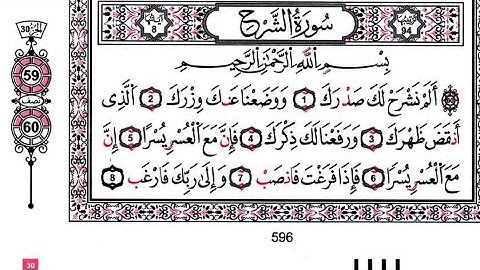 سُورَةُ الشَّرْحِ
94
8
30
59
نصف
60
بِسْمِ اللَّهِ الرَّحْمَٰنِ الرَّحِيمِ
أَلَمْ نَشْرَحْ لَكَ صَدْرَكَ 1 وَوَضَعْنَا عَنكَ وِزْرَكَ 2 الَّذِي
أَنقَضَ ظَهْرَكَ 3 وَرَفَعْنَا لَكَ ذِكْرَكَ 4 فَإِنَّ مَعَ الْعُسْرِ يُسْرًا 5 إِنَّ
مَعَ الْعُسْرِ يُسْرًا 6 فَإِذَا فَرَغْتَ فَانصَبْ 7 وَإِلَىٰ رَبِّكَ فَارْغَب 8
596
30